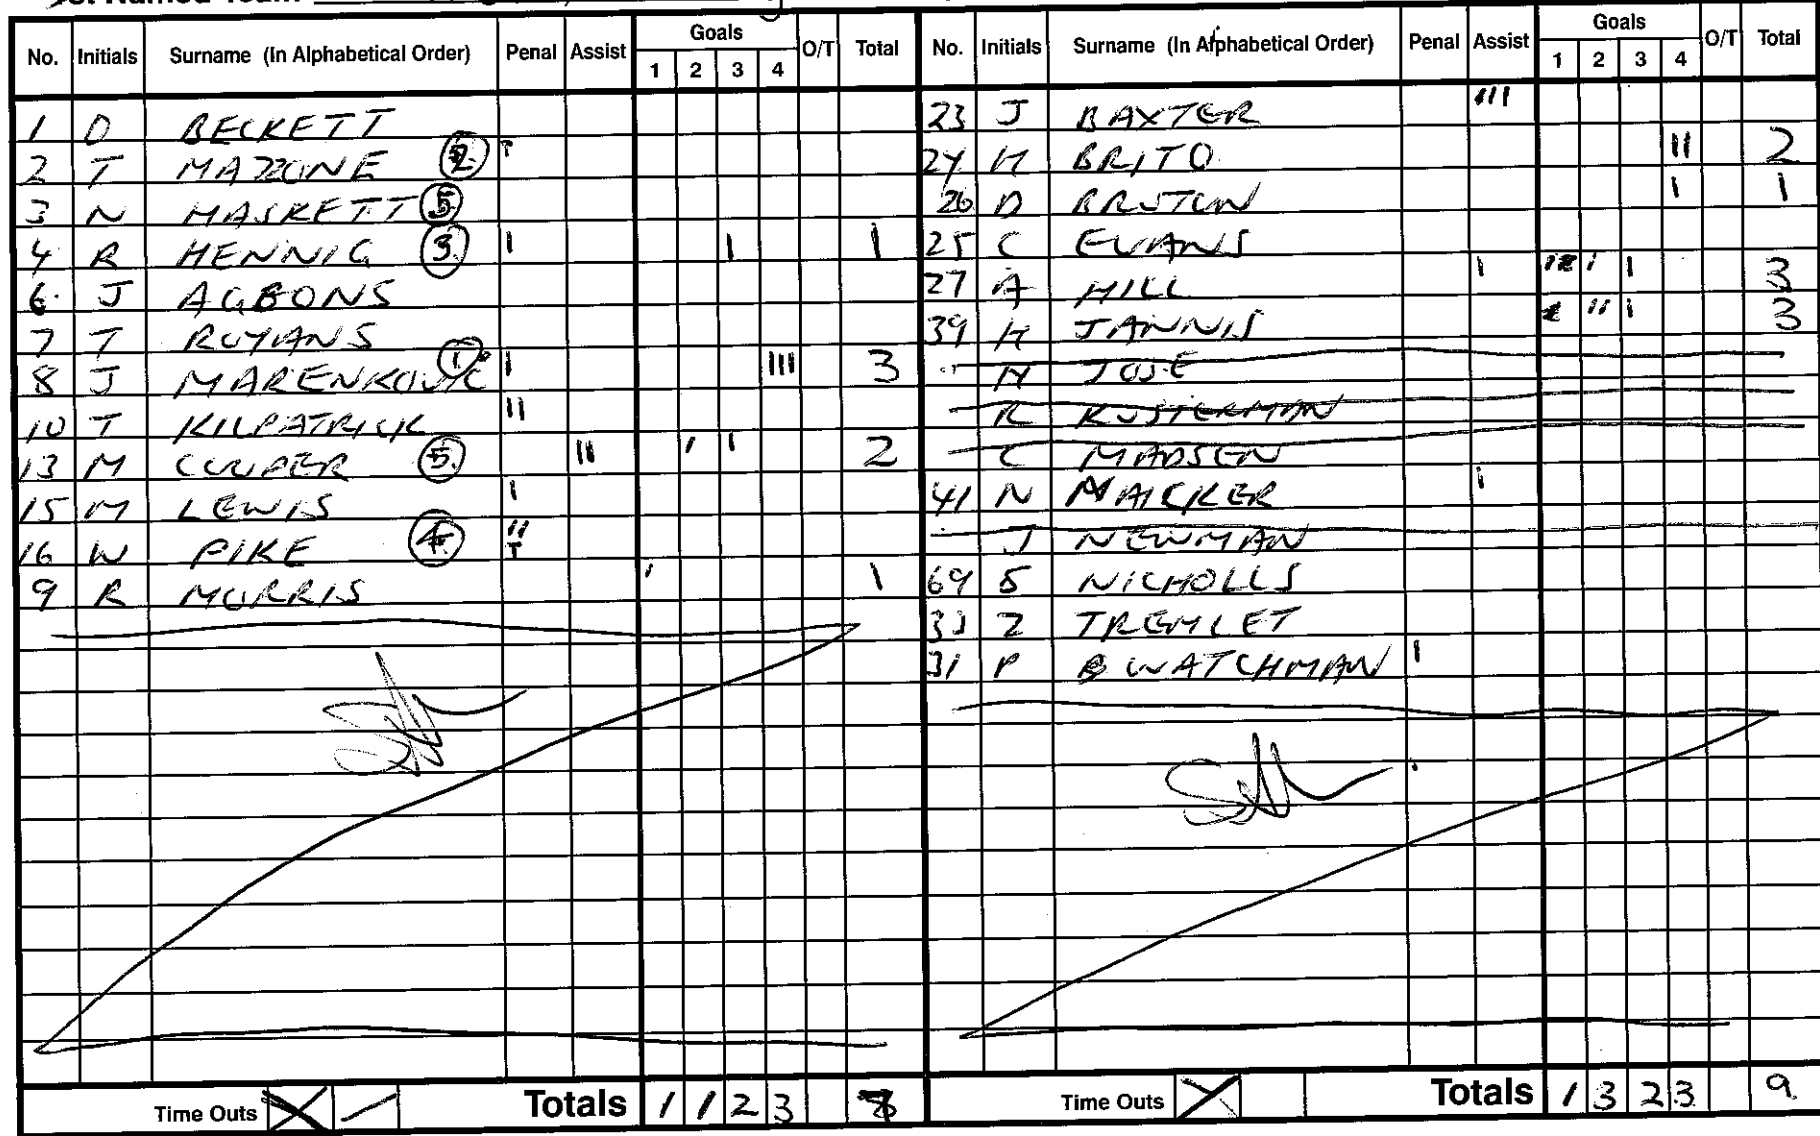 1st Named Team
No. Initials Surname (In Alphabetical Order) Penal Assist Goals 1 2 3 4 O/T Total
1 D BECKETT
2 T MAZZONE 2 T
3 N HASKETT 5
4 R HENNIG 3 I I 1
6 J AGBONS
7 T RUYIANS
8 J MARENKOVIC 1 I III 3
10 T KILPATRICK II
13 M COOPER 5 II I I 2
15 M LEWIS I
16 W PIKE 4 II T
9 R MORRIS I 1
Time Outs X Totals 1 1 2 3
No. Initials Surname (In Alphabetical Order) Penal Assist Goals 1 2 3 4 O/T Total
23 J BAXTER III
24 H BRITO II 2
26 D BRUTON I 1
25 C EVANS
27 A HILL I I I 3
39 H JANNIS II I 3
N JOSE
R KUSTERMAN
C MADSEN
41 N NAICKER I
J NEWMAN
69 S NICHOLLS
33 Z TREMLET
31 P WATCHMAN I
Time Outs X Totals 1 3 2 3 9